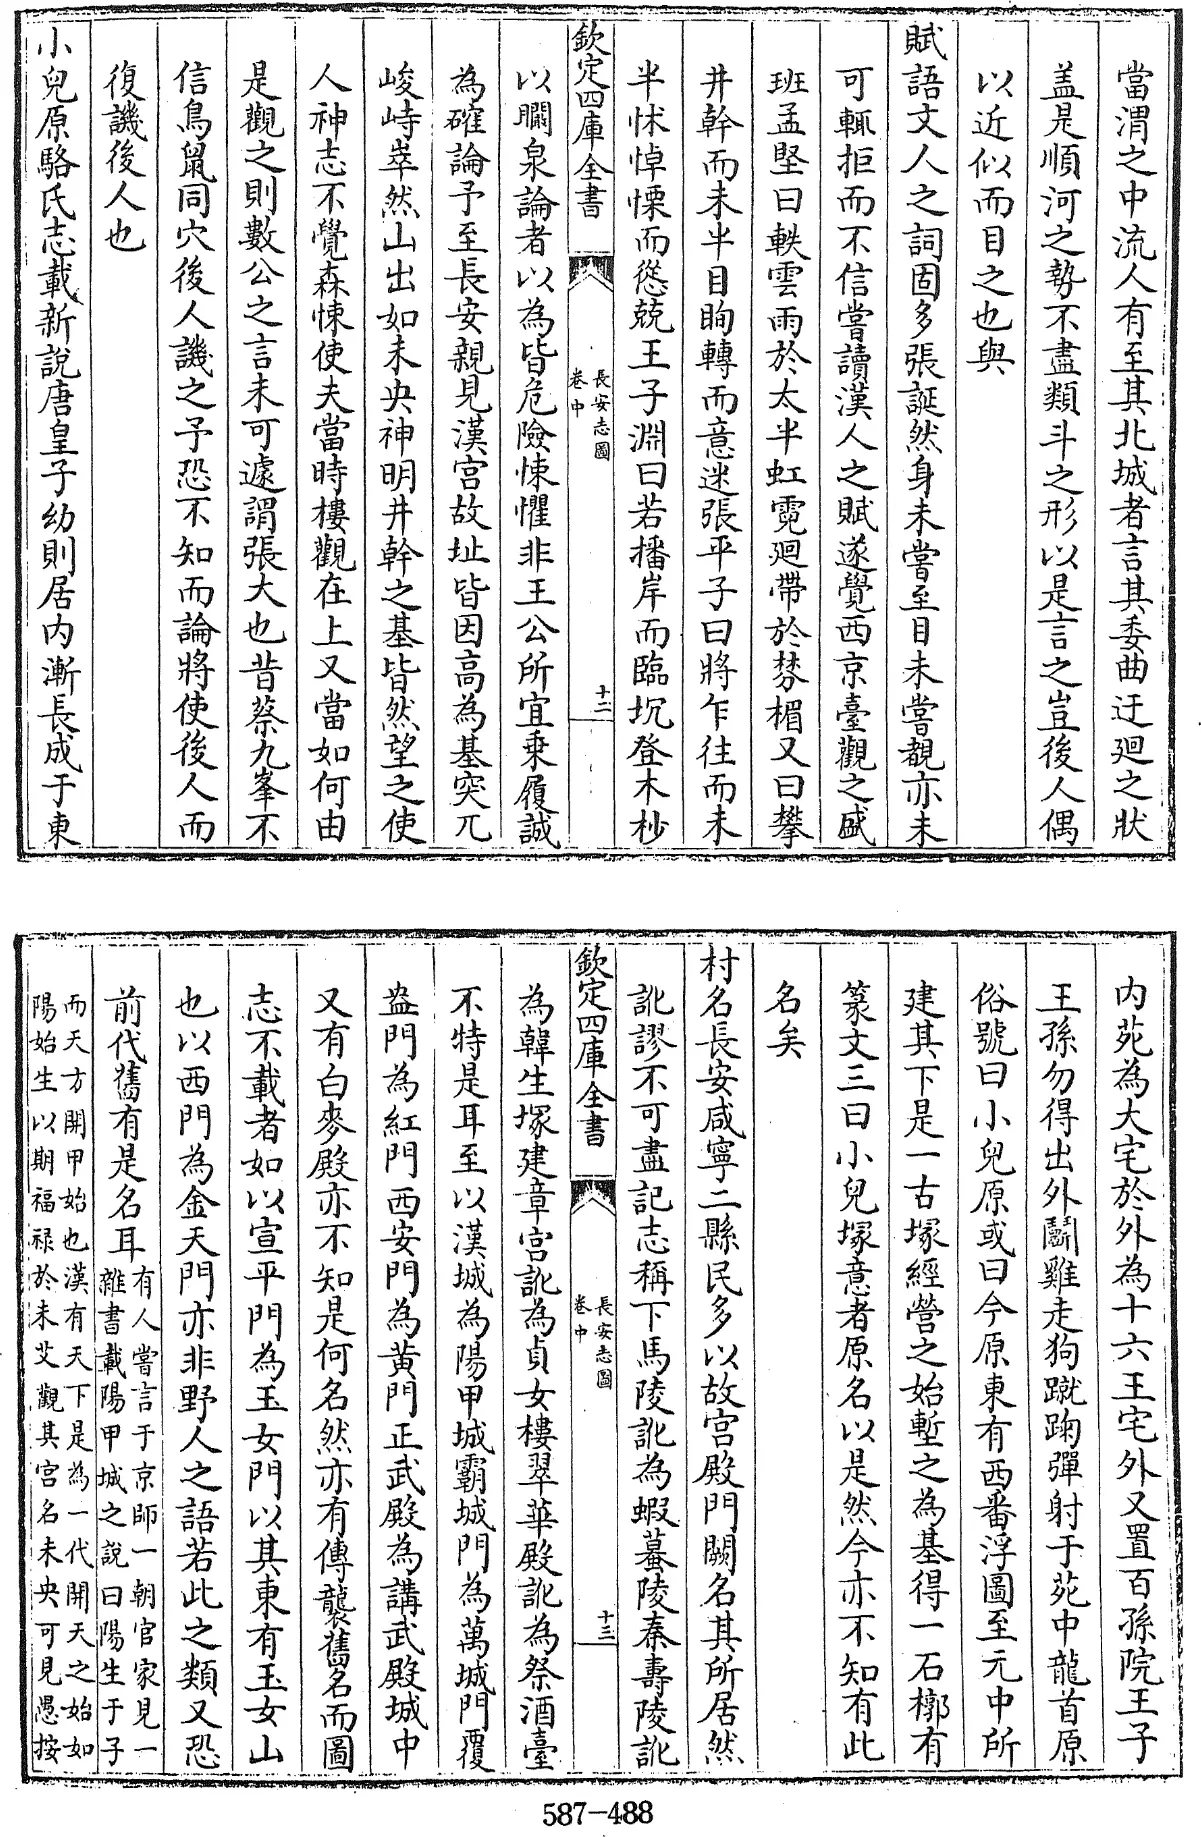 當渭之中流人有至其北城者言其委曲迂廻之狀
盖是順河之勢不盡類斗之形以是言之豈後人偶
以近似而目之也與
賦語文人之詞固多張誕然身未嘗至目未嘗覩亦未
可輒拒而不信嘗讀漢人之賦遂覺西京臺觀之盛
班孟堅曰軼雲雨於太半虹霓廻帶於棼楣又曰攀
井幹而未半目眴轉而意迷張平子曰將乍往而未
半怵悼慄而慫兢王子淵曰若播岸而臨坑登木杪
欽定四庫全書
長安志圖
卷中
十二
以矙泉論者以為皆危險悚懼非王公所宜乗履誠
為確論予至長安親見漢宮故址皆因高為基突兀
峻峙崒然山出如未央神明井幹之基皆然望之使
人神志不覺森悚使夫當時樓觀在上又當如何由
是觀之則數公之言未可遽謂張大也昔蔡九峯不
信鳥鼠同穴後人譏之予恐不知而論將使後人而
復譏後人也
小兒原駱氏志載新説唐皇子幼則居内漸長成于東
内苑為大宅於外為十六王宅外又置百孫院王子
王孫勿得出外鬭雞走狗蹴踘彈射于苑中龍首原
俗號曰小兒原或曰今原東有西番浮圖至元中所
建其下是一古塚經營之始塹之為基得一石槨有
篆文三曰小兒塚意者原名以是然今亦不知有此
名矣
村名長安咸寧二縣民多以故宮殿門闕名其所居然
訛謬不可盡記志稱下馬陵訛為蝦蟇陵秦壽陵訛
欽定四庫全書
長安志圖
卷中
十三
為韓生塚建章宮訛為貞女樓翠華殿訛為祭酒臺
不特是耳至以漢城為陽甲城霸城門為萬城門覆
盎門為紅門西安門為黄門正武殿為講武殿城中
又有白麥殿亦不知是何名然亦有傳襲舊名而圖
志不載者如以宣平門為玉女門以其東有玉女山
也以西門為金天門亦非野人之語若此之類又恐
前代舊有是名耳有人嘗言于京師一朝官家見一
雜書載陽甲城之説曰陽生于子
而天方開甲始也漢有天下是為一代開天之始如
陽始生以期福禄於未艾觀其宮名未央可見愚按
587-488